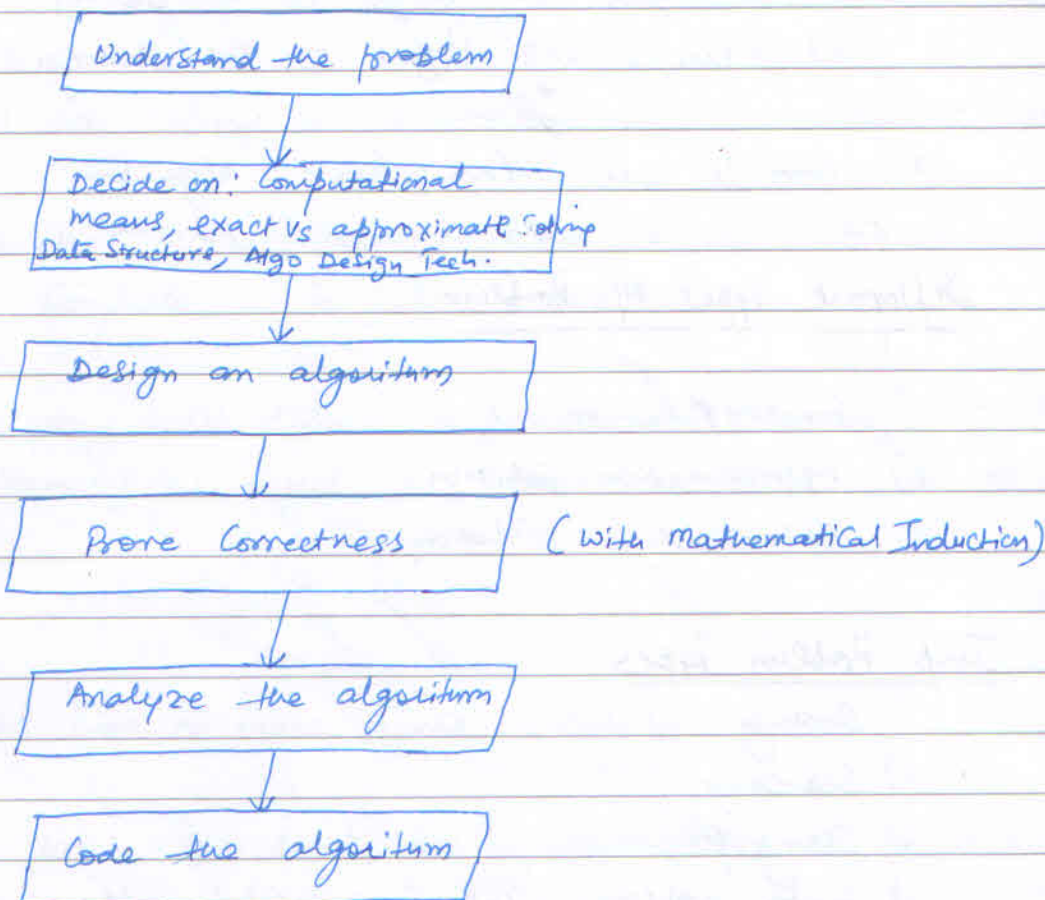 Understand the problem
Decide on: Computational
means, exact vs approximate Solving
Data Structure, Algo Design Tech.
Design an algorithm
Prove Correctness (with Mathematical Induction)
Analyze the algorithm
Code the algorithm